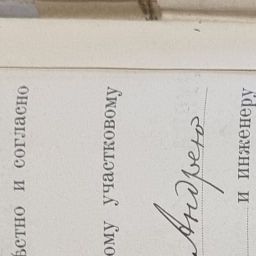 ѣстно и согласно
ому участковому
Андрею
и инженеру